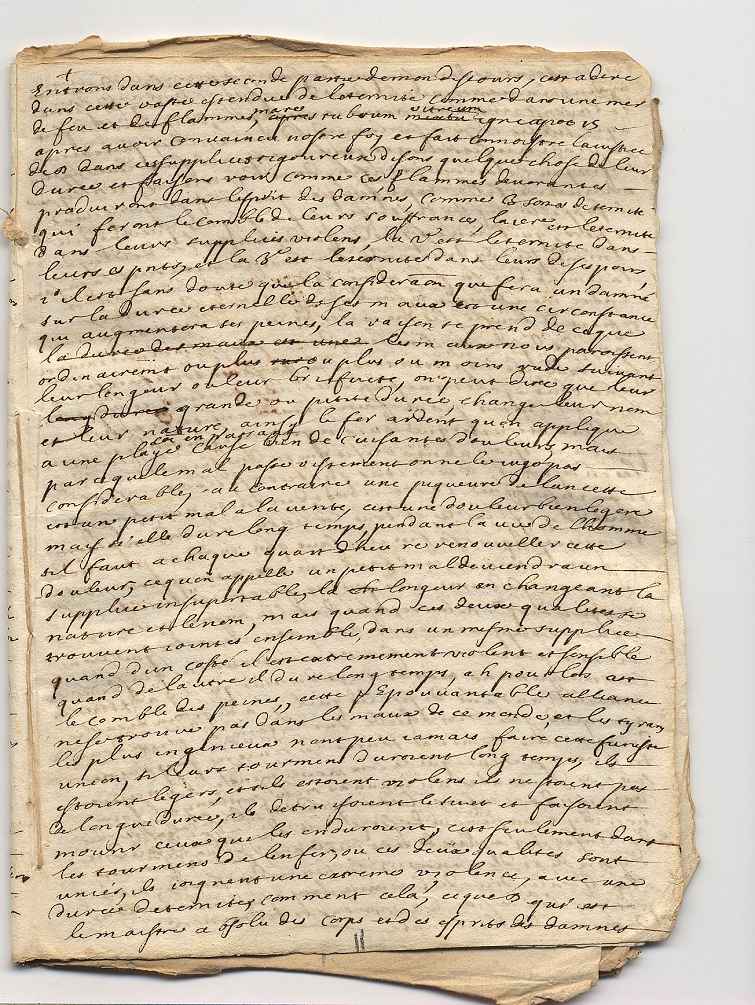 Entrons dans cette seconde partie de mon discours, cest a dire
dans cette vaste estendue de leternité comme dans une mer
de feu et de flammes, mare vitreum igne apoc 15
apres avoir convaincu nostre foy et fait connoistre la justice
de dans ces supplices rigoureux disons quelque chose de leur
durée et faisons voir comme ces flammes devorantes
produiront dans lesprit des damnes, comme 3 sortes deternité
qui feront le comble de leurs souffrances, la 1ere est leternité
dans leurs supplices violens, la 2e est leternité dans
leurs esprits, et la 3e est leternité dans leurs desespoirs,
il est sans doute que la consideraon que fera un damné
sur la durée eternelle de ses maux est une circonstance
qui augmentera ses peines, la raison se prend de ce que
la durée des maux est une les maux nous paroissent
ordinairemt ou plus ou plus ou moins rude suivant
leur longeur ou leur briefveté, on peut dire que leur
durée grande ou petite durée, change leur nom
et leur nature, ainsy le fer ardent quon applique
en passant
a une playe cause bien de cuisantes douleurs, mais
parceque le mal passe vistement on ne le juge pas
considerable, au contraire une piqueure de lancette
est un petit mal a la verité, cest une douleur bien legere
mais si elle dure long temps, pendant la vie de lhomme
sil faut a chaque quart dheure renouveller cette
douleur, ce quon appelle un petit mal deviendra un
supplice insuportable, la longeur en changeant la
nature et le nom, mais quand ces deux qualites se
trouvent jointes ensemble, dans un mesme supplice
quand dun costé il est extremement violent et sensible
quand de lautre il dure long temps, ah pour lors cest
le comble des peines, cette epouvantable alliance
ne se trouve pas dans les maux de ce monde, et les tyrans
les plus ingenieux nont peu jamais faire cette funeste
union, si leurs tourmens duroient long temps, ils
estoient legers, et sils estoient violens ils nestoient pas
de longue durée, ils detruisoient le sujet et faisoient
mourir ceux que les enduroient, cest seulement dans
les tourmens de lenfer, ou ces deux qualites sont
unies, ils joignent une extreme violence, avec une
durée deternité, comment cela, ce que qui est
le maistre absolu des corps et des esprits des damnes